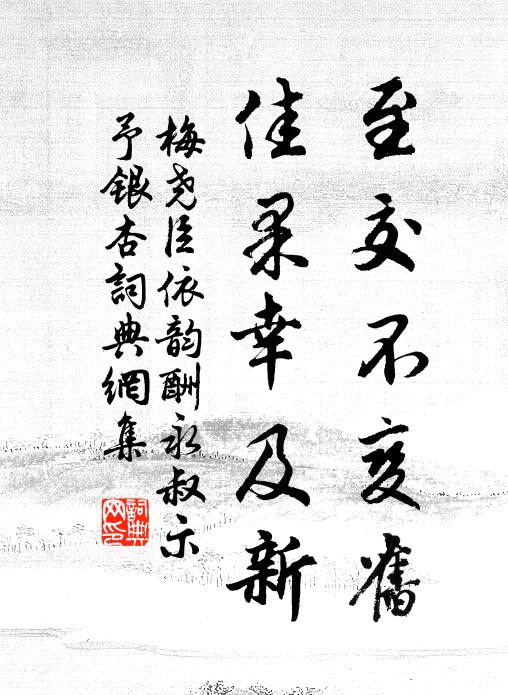 至交不变舊
佳果幸及新
梅尧臣依韵酬永叔示
予銀杏詞典網集
詞典
网印